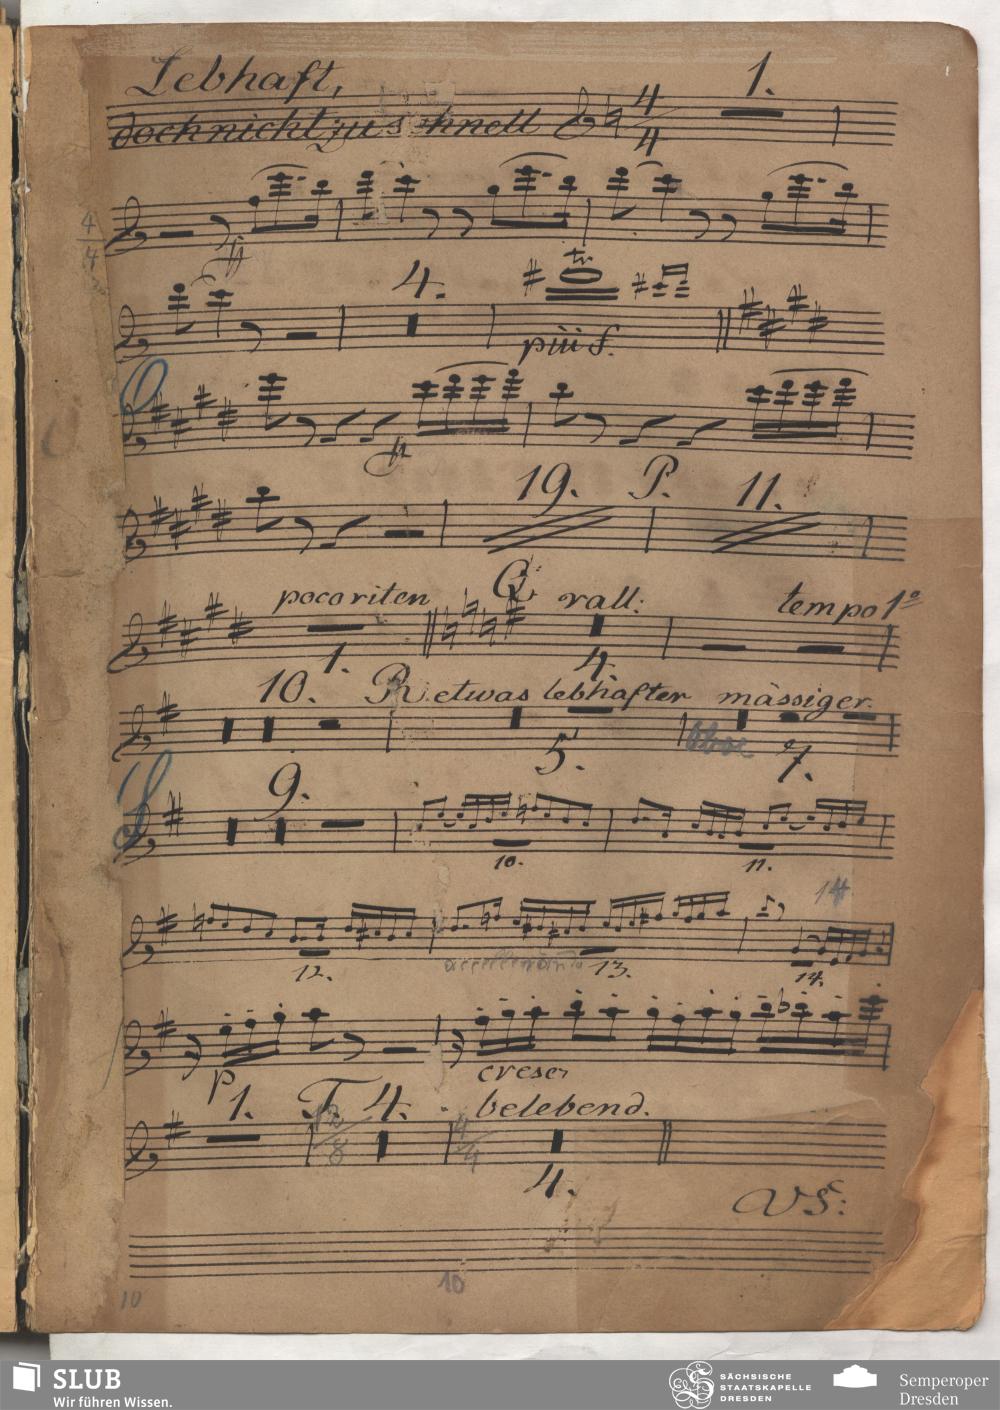 Lebhaft,
doch nicht zu schnell 4/4 1.
4/4
ff
4. tr
più f.
ff
19. P. 11.
poco riten Q. rall: tempo 1o
1. 4.
10. R. etwas lebhafter mässiger.
5. Oboe 7.
S
9.
10. 11.
14
12. accellerando 13. 14.
p cresc
1. T. 4. belebend.
12/8 4/4
4.
VS:
10 10
SLUB
Wir führen Wissen.
SÄCHSISCHE
STAATSKAPELLE
DRESDEN
Semperoper
Dresden